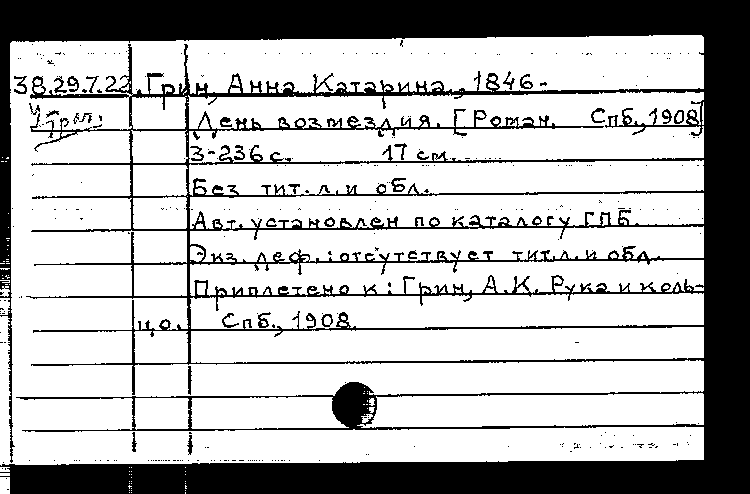 38.29.7.22. Грин, Анна Катарина, 1846-
День возмездия. [Роман. Спб., 1908]
3-236 с. 17 см.
Без тит. л. и обл.
Авт. установлен по каталогу ГПБ.
Экз. деф.: отсутствует тит. л. и обл.
Приплетено к: Грин, А.К. Рука и коль-
цо. Спб., 1908.